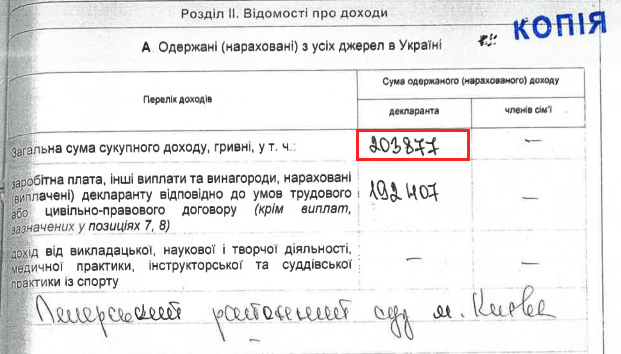 Розділ II. Відомості про доходи
КОПІЯ
А. Одержані (нараховані) з усіх джерел в Україні
Перелік доходів
Сума одержаного (нарахованого) доходу
декларанта
членів сім'ї
Загальна сума сукупного доходу, гривні, у т. ч.:
203877
—
заробітна плата, інші виплати та винагороди, нараховані
(виплачені) декларанту відповідно до умов трудового
або цивільно-правового договору (крім виплат,
зазначених у позиціях 7, 8)
192407
—
дохід від викладацької, наукової і творчої діяльності,
медичної практики, інструкторської та суддівської
практики із спорту
—
—
Печерський районний суд м. Києва